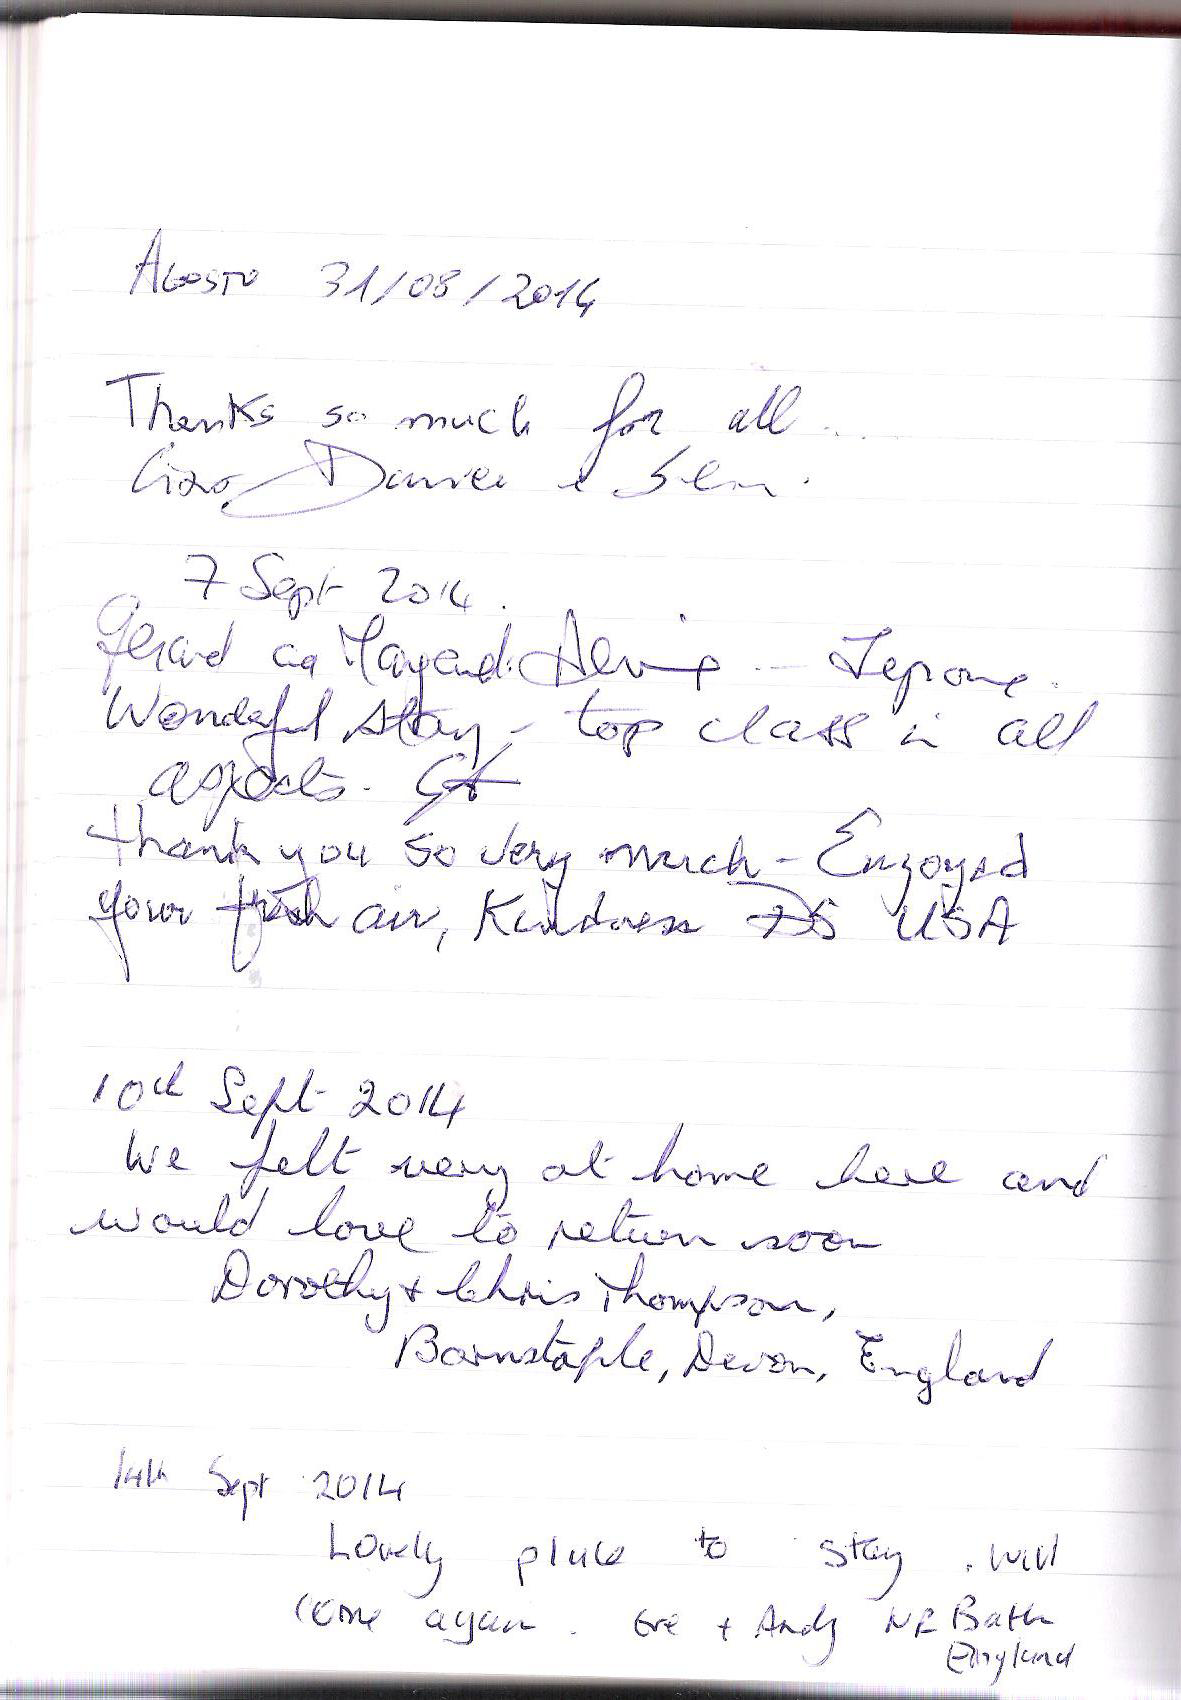 Agosto 31/08/2014
Thanks so much for all...
Ciao Daniel e
7 Sept 2014.
Gerard
Wonderful stay - top class in all
aspects.
Thank you so very much - Enzoyed
your fresh air, Kindness DS USA
10th Sept 2014
We felt very at home here and
would love to return soon
Dorothy + Chris Thompson,
Barnstaple, Devon, England
14th Sept 2014
Lovely place to stay . Will
come again. Eve + Andy NR Bath
England